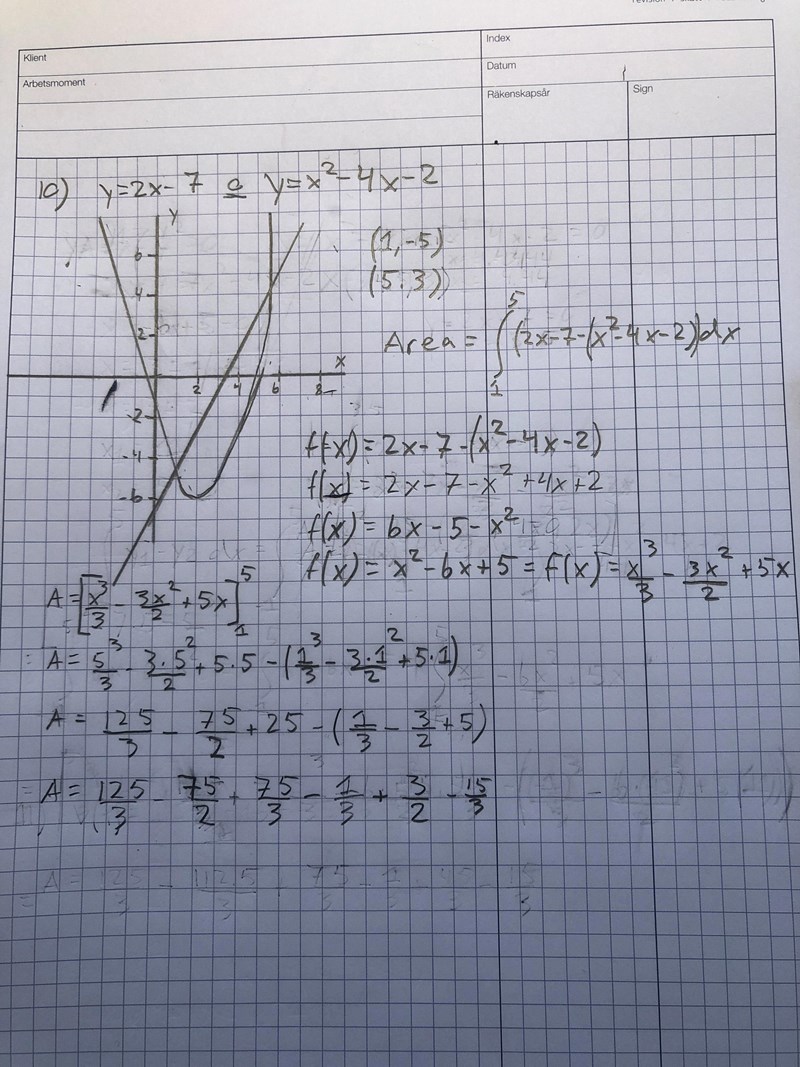 Klient
Index
Arbetsmoment
Datum
Räkenskapsår
Sign
10) y=2x-7 o y=x²-4x-2
y
6
4
2
x
2 4 6 8
-2
-4
-6
(1,-5)
(5,3))
Area = ∫₁⁵ (2x-7-(x²-4x-2))dx
f(x) = 2x-7-(x²-4x-2)
f(x) = 2x-7-x²+4x+2
f(x) = 6x-5-x²
f(x) = x²-6x+5 = f(x) = x³/3 - 3x²/2 + 5x
A = [x³/3 - 3x²/2 + 5x]₁⁵
A = 5³/3 - 3·5²/2 + 5·5 - (1³/3 - 3·1²/2 + 5·1)
A = 125/3 - 75/2 + 25 - (1/3 - 3/2 + 5)
= A = 125/3 - 75/2 + 75/3 - 1/3 + 3/2 - 15/3